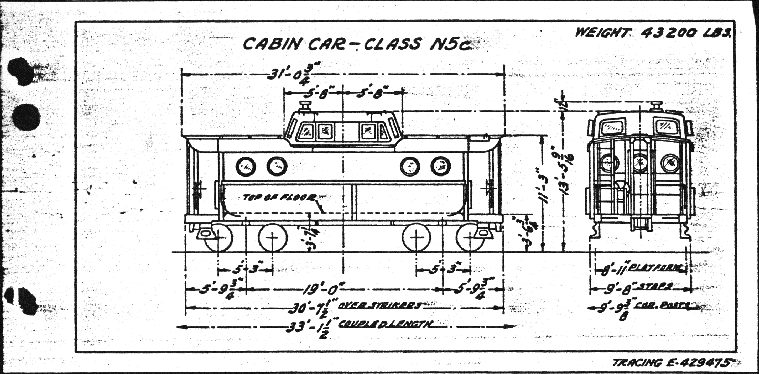 CABIN CAR-CLASS N5c
WEIGHT 43200 LBS.
31'-0 3/4"
5'-8" 5'-8"
TOP OF FLOOR
11'-3"
5'-3" 5'-3"
5'-9 3/4" 19'-0" 5'-9 3/4"
30'-7 1/2" OVER STRIKERS
33'-1 1/2" COUPLED LENGTH
8'-11" PLATFORM
9'-8" STEPS
9'-9 3/8" COR. POSTS
TRACING E-429475